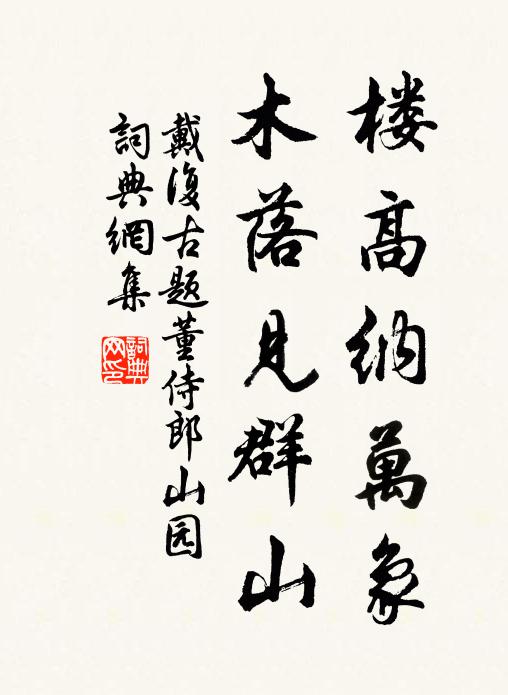 楼高纳萬象
木落见群山
戴復古题董侍郎山园
詞典網集
詞典網印